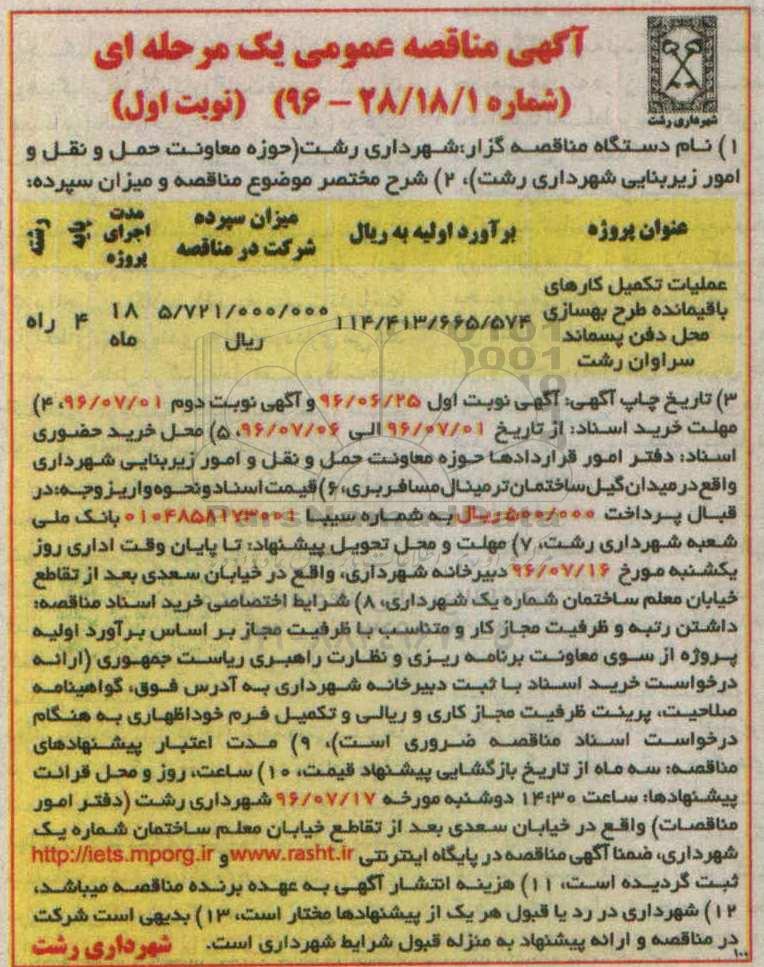 آگهی مناقصه عمومی یک مرحله ای
(شماره ۲۸/۱۸/۱ – ۹۶) (نوبت اول)
شهرداری رشت
۱) نام دستگاه مناقصه گزار:شهرداری رشت(حوزه معاونت حمل و نقل و
امور زیربنایی شهرداری رشت)، ۲) شرح مختصر موضوع مناقصه و میزان سپرده:
عنوان پروژه برآورد اولیه به ریال میزان سپرده شرکت در مناقصه مدت اجرای پروژه پایه رشته
عملیات تکمیل کارهای
باقیمانده طرح بهسازی
محل دفن پسماند
سراوان رشت
۱۱۴/۴۱۳/۶۶۵/۵۷۴
۵/۷۲۱/۰۰۰/۰۰۰
ریال
۱۸
ماه
۴
راه
۳) تاریخ چاپ آگهی: آگهی نوبت اول ۹۶/۰۶/۲۵ و آگهی نوبت دوم ۹۶/۰۷/۰۱، ۴)
مهلت خرید اسناد: از تاریخ ۹۶/۰۷/۰۱ الی ۹۶/۰۷/۰۶، ۵) محل خرید حضوری
اسناد: دفتر امور قراردادها حوزه معاونت حمل و نقل و امور زیربنایی شهرداری
واقع در میدان گیل ساختمان ترمینال مسافربری، ۶) قیمت اسناد و نحوه واریز وجه: در
قبال پرداخت ۵۰۰/۰۰۰ ریال به شماره سیبا ۰۱۰۴۸۵۸۱۷۳۰۰۱ بانک ملی
شعبه شهرداری رشت، ۷) مهلت و محل تحویل پیشنهاد: تا پایان وقت اداری روز
یکشنبه مورخ ۹۶/۰۷/۱۶ دبیرخانه شهرداری، واقع در خیابان سعدی بعد از تقاطع
خیابان معلم ساختمان شماره یک شهرداری، ۸) شرایط اختصاصی خرید اسناد مناقصه:
داشتن رتبه و ظرفیت مجاز کار و متناسب با ظرفیت مجاز بر اساس برآورد اولیه
پروژه از سوی معاونت برنامه ریزی و نظارت راهبری ریاست جمهوری (ارائه
درخواست خرید اسناد با ثبت دبیرخانه شهرداری به آدرس فوق، گواهینامه
صلاحیت، پرینت ظرفیت مجاز کاری و ریالی و تکمیل فرم خوداظهاری به هنگام
درخواست اسناد مناقصه ضروری است)، ۹) مدت اعتبار پیشنهادهای
مناقصه: سه ماه از تاریخ بازگشایی پیشنهاد قیمت، ۱۰) ساعت، روز و محل قرائت
پیشنهادها: ساعت ۱۴:۳۰ دوشنبه مورخه ۹۶/۰۷/۱۷ شهرداری رشت (دفتر امور
مناقصات) واقع در خیابان سعدی بعد از تقاطع خیابان معلم ساختمان شماره یک
شهرداری، ضمنا آگهی مناقصه در پایگاه اینترنتی www.rasht.ir و http://iets.mporg.ir
ثبت گردیده است، ۱۱) هزینه انتشار آگهی به عهده برنده مناقصه میباشد،
۱۲) شهرداری در رد یا قبول هر یک از پیشنهادها مختار است، ۱۳) بدیهی است شرکت
در مناقصه و ارائه پیشنهاد به منزله قبول شرایط شهرداری است.
شهرداری رشت
۱۰۰